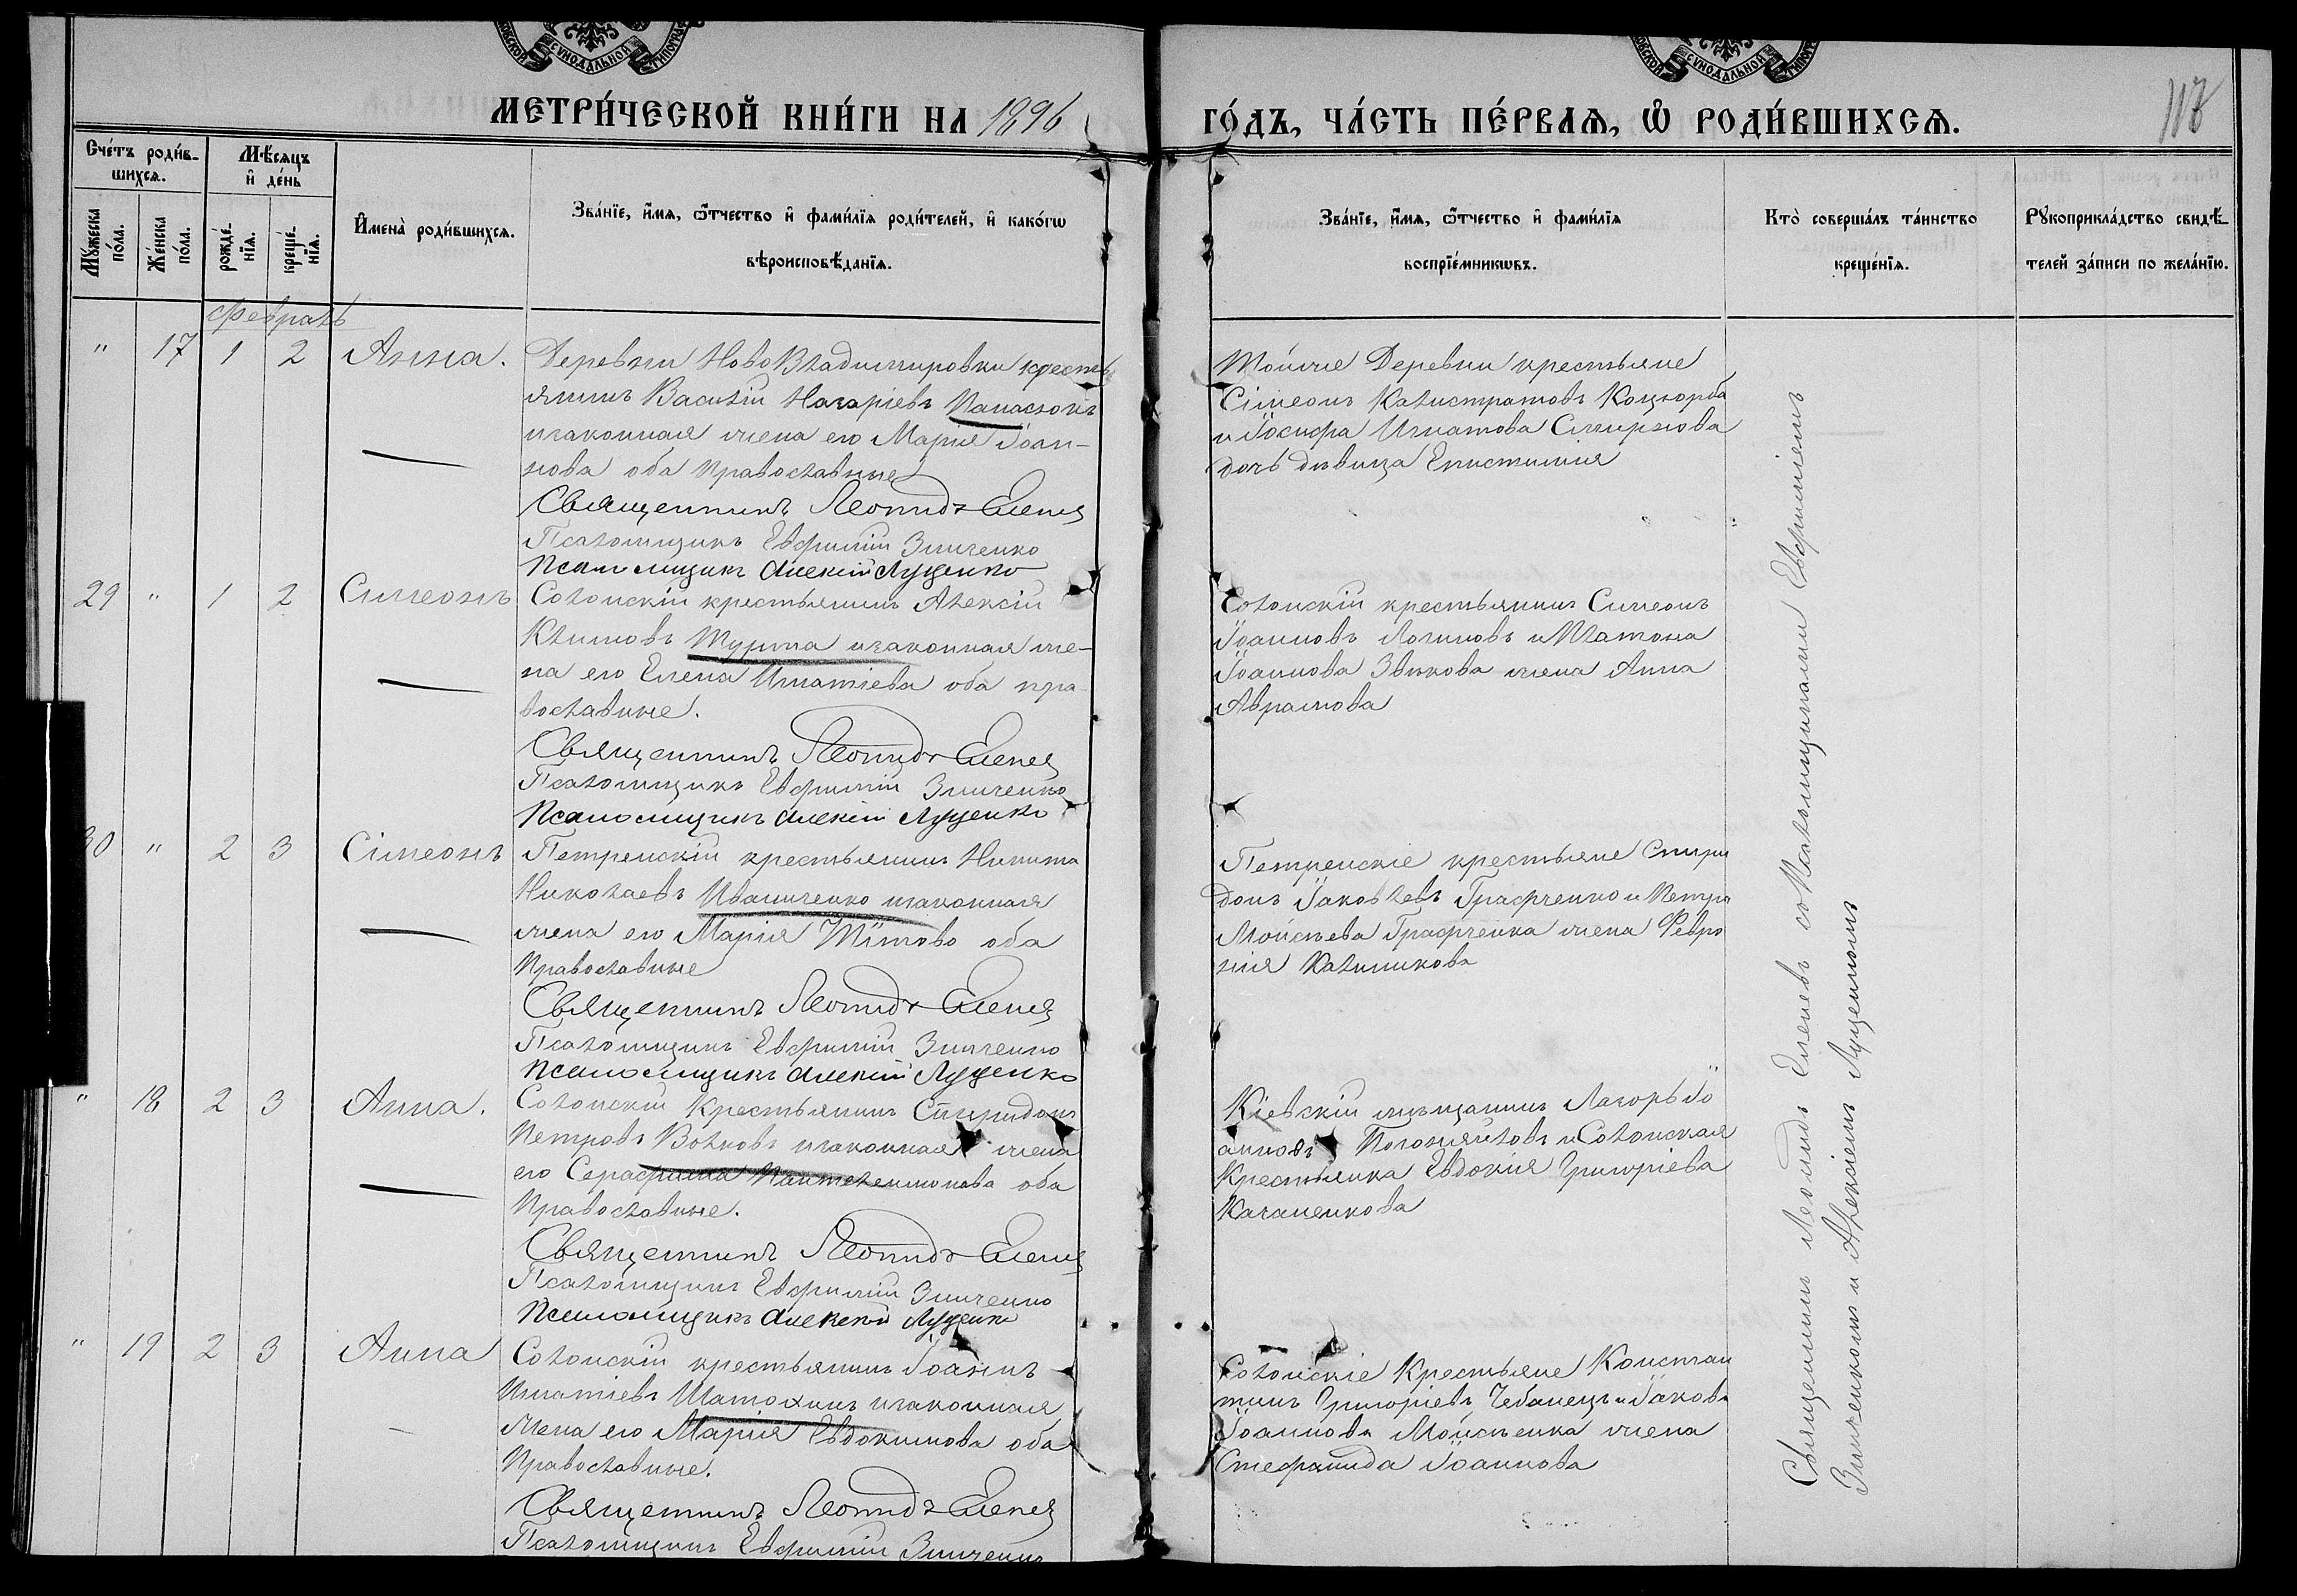 МЕТРИ́ЧЕСКОЙ КНИ́ГИ НА 1896 ГО́ДЪ, ЧА́СТЬ ПЕ́РВАЯ, Ѡ РОДИ́ВШИХСЯ.
Сче́тъ роди́в-
шихся.
Мѣ́сяцъ
и҆ де́нь
Мꙋжеска по́ла.
Же́нска по́ла.
рожде́-
нїѧ.
креще́-
нїѧ.
И҆мена̀ роди́вшихсѧ.
Зва́нїе, и҆́мѧ, ѻ҆́тчество и҆ фами́лїѧ роди́телей, и҆ како́гѡ
вѣроисповѣ́данїѧ.
Зва́нїе, и҆́мѧ, ѻ҆́тчество и҆ фами́лїѧ
воспрїе́мникѡвъ.
Кто̀ соверша́лъ та́инство
креще́нїѧ.
Рꙋкоприкла́дство свидѣ́-
телей за́писи по жела́нїю.
Февраль
" 17 1 2 Анна.
Деревни НовоВладимировки кресть
янинъ Василій Назаріевъ Панасюкъ
изаконная жена его Марія Іоан-
нова оба православные
Священникъ Леонидъ
Псаломщикъ Евфимій Зинченко
Псаломщикъ Алексій Луценко
Тойже Деревни крестьяне
Сімеонъ Калистратовъ Коцюрба
и Іосифа Игнатова Смирнова
дочь дѣвица Епистимія
29 " 1 2 Симеонъ
Солонскій крестьянинъ Алексій
Климовъ изаконная же-
на его Елена Игнатіева оба пра
вославные.
Священникъ Леонидъ
Псаломщикъ Евфимій Зинченко
Псаломщикъ Алексій Луценко
Солонскій крестьянинъ Симеонъ
Іоанновъ Логиновъ и Платона
Іоаннова Звѣкова жена Анна
Аврамова
30 " 2 3 Сімеонъ
Петренскій крестьянинъ Никита
Николаевъ Иваниченко изаконная
жена его Марія Тітова оба
Православные
Священникъ Леонидъ
Псаломщикъ Евфимій Зинченко
Псаломщикъ Алексій Луценко
Петренскіе крестьяне Спири
донъ Іаковлевъ Графченко и Петра
Мойсѣева Графченка жена Февро
нія Калиникова
" 18 2 3 Анна.
Солонскій Крестьянинъ Спиридонъ
Петровъ Волковъ изаконная жена
его Серафима Пантелеимонова оба
Православные.
Священникъ Леонидъ
Псаломщикъ Евфимій Зинченко
Псаломщикъ Алексій Луценко
Кіевскій мѣщанинъ Лазорь Іо
анновъ и Солонская
Крестьянка Евдокія Григоріева
Качаненкова
" 19 2 3 Анна
Солонскій крестьянинъ Іоаннъ
Игнатіевъ Шатохинъ изаконная
жена его Марія Евдокимова оба
Православные.
Священникъ Леонидъ
Псаломщикъ Евфимій Зинченко
Солонскіе Крестьяне Констан
тинъ Григоріевъ Чебанецъ и Іакова
Іоаннова Мойсѣенка жена
Стефанида Іоаннова
Священникъ Леонидъ со Псаломщиками Евфиміемъ
Зинченкомъ и Алексіемъ Луценкомъ